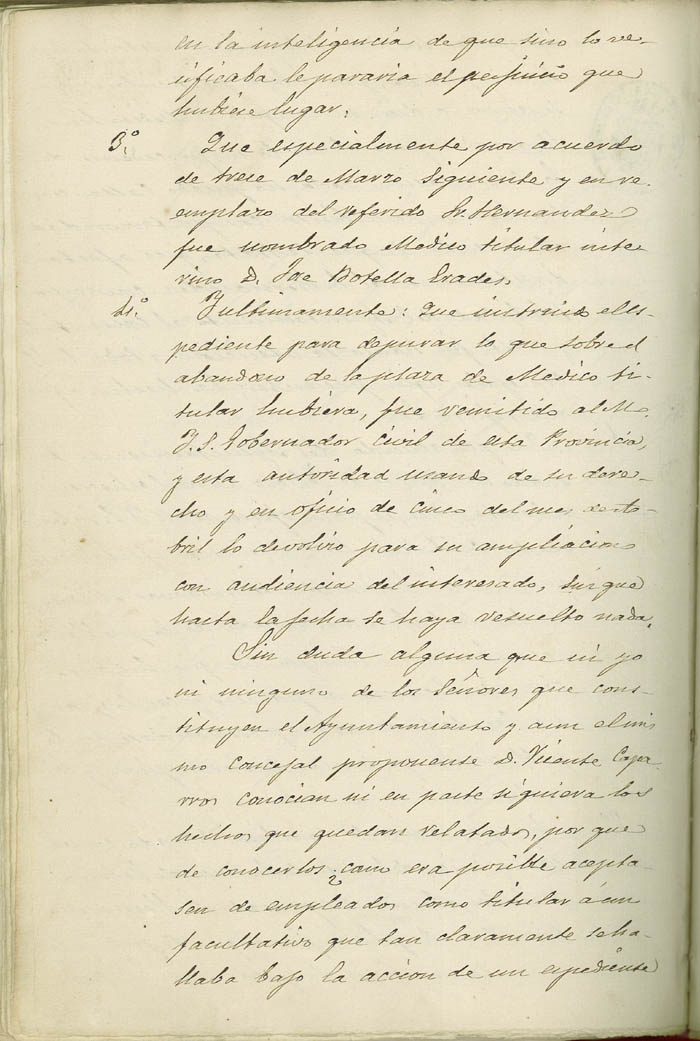 en la inteligencia de que sino lo ve-
rificaba le pararia el perjuicio que
hubiese lugar.
3.º Que especialmente por acuerdo
de trese de Marzo siguiente y en re-
emplazo del referido Sr. Hernandez
fue nombrado Medico titular inte
rino D. Jose Botella Erades,
4.º Y ultimamente: Que instruido el es-
pediente para depurar lo que sobre el
abandono de la plaza de Medico ti-
tular hubiera, fue remitido al M.
Y. S. Gobernador Civil de esta Provincia,
y esta autoridad usando de su dere-
cho y en oficio de cinco del mes de A-
bril lo devolvio para su ampliacion
con audiencia del interesado, sin que
hasta la fecha se haya resuelto nada.
Sin duda alguna que ni yo
ni ninguno de los Señores que cons-
tituyen el Ayuntamiento y aun el mis
mo concejal proponente D. Vicente Capa-
rros conocian ni en parte siquiera los
hechos que quedan relatados, por que
de conocerlos ¿como era posible acepta-
sen de empleados como titular á un
facultativo que tan claramente se ha-
llaba bajo la accion de un espediente